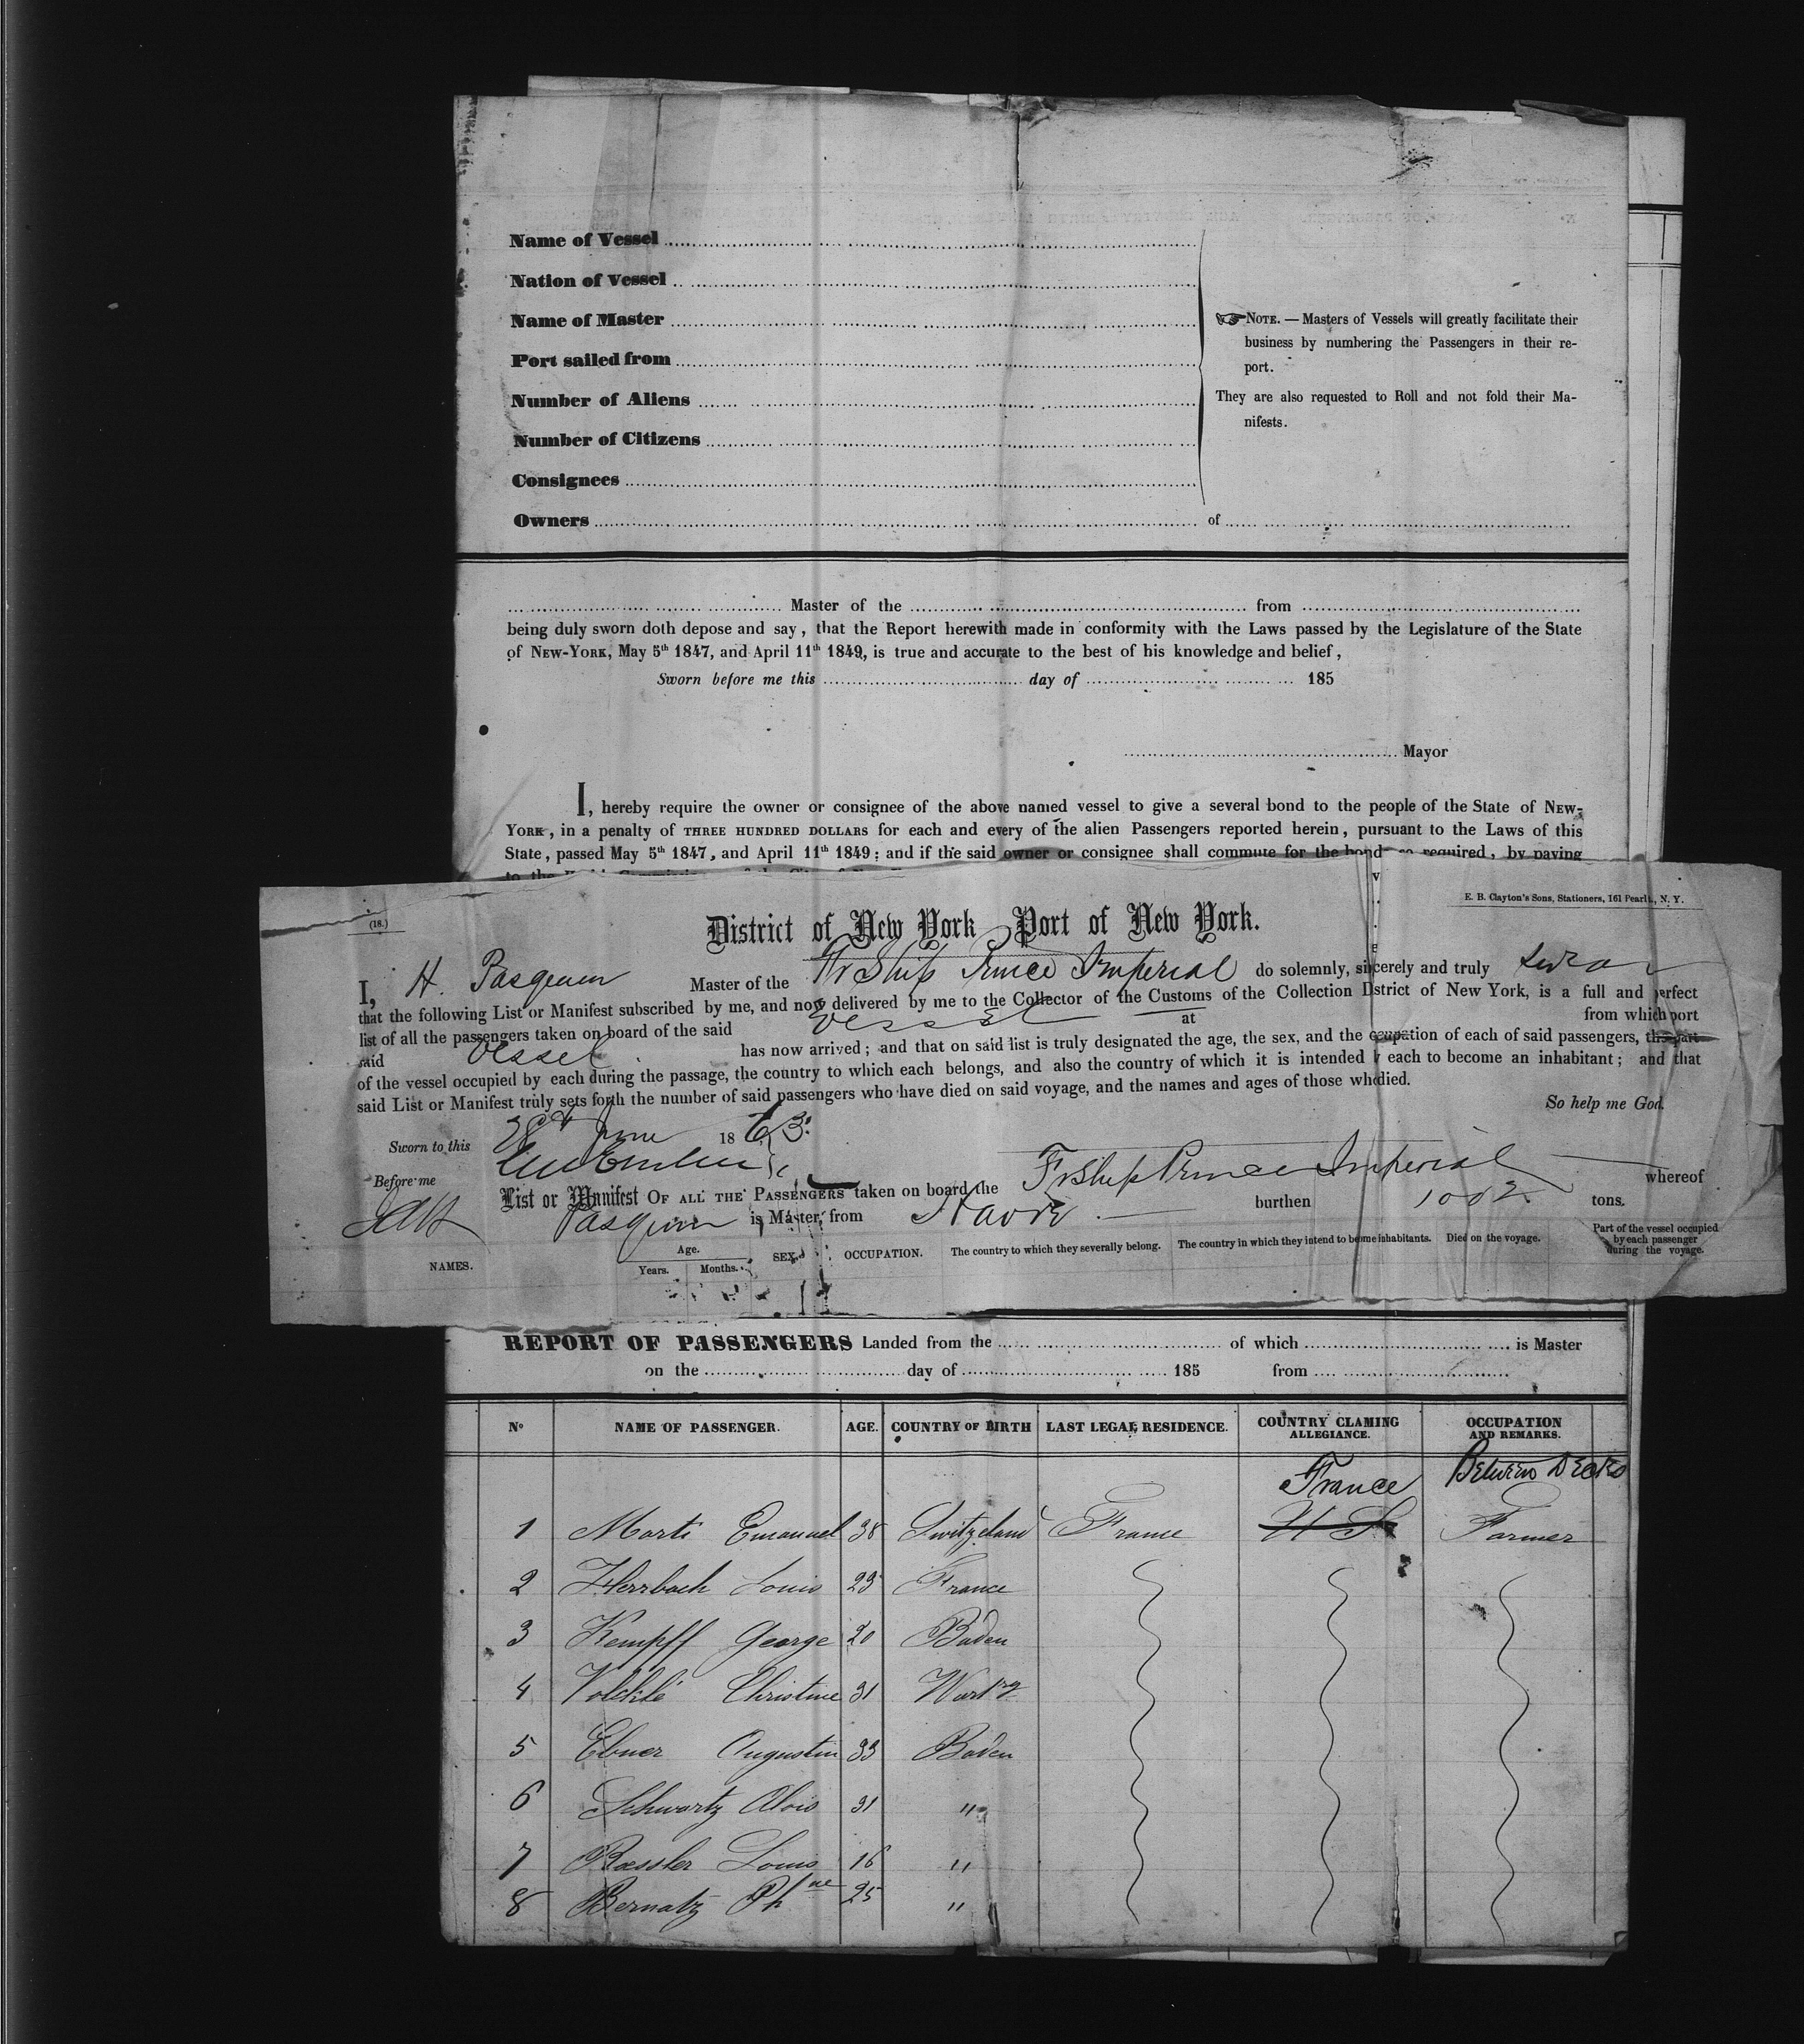 Name of Vessel
Nation of Vessel
Name of Master
Port sailed from
Number of Aliens
Number of Citizens
Consignees
Owners of
NOTE. — Masters of Vessels will greatly facilitate their
business by numbering the Passengers in their re-
port.
They are also requested to Roll and not fold their Ma-
nifests.
Master of the from
being duly sworn doth depose and say, that the Report herewith made in conformity with the Laws passed by the Legislature of the State
of NEW-YORK, May 5th 1847, and April 11th 1849, is true and accurate to the best of his knowledge and belief,
Sworn before me this day of 185
Mayor
I, hereby require the owner or consignee of the above named vessel to give a several bond to the people of the State of NEW-
YORK, in a penalty of THREE HUNDRED DOLLARS for each and every of the alien Passengers reported herein, pursuant to the Laws of this
State, passed May 5th 1847, and April 11th 1849: and if the said owner or consignee shall commute for the bond so required, by paying
(18.)
E. B. Clayton's Sons, Stationers, 161 Pearl, N. Y.
District of New York Port of New York.
I, H. Pasquem Master of the Fr Ship Prince Imperial do solemnly, sincerely and truly swear
that the following List or Manifest subscribed by me, and now delivered by me to the Collector of the Customs of the Collection District of New York, is a full and perfect
list of all the passengers taken on board of the said vessel at from which port
said vessel has now arrived; and that on said list is truly designated the age, the sex, and the occupation of each of said passengers, the part
of the vessel occupied by each during the passage, the country to which each belongs, and also the country of which it is intended by each to become an inhabitant; and that
said List or Manifest truly sets forth the number of said passengers who have died on said voyage, and the names and ages of those who died.
So help me God.
Sworn to this 28th June 1863
Before me
List or Manifest OF ALL THE PASSENGERS taken on board the Fr Ship Prince Imperial whereof
is Master, from Havre burthen 1002 tons.
NAMES. Age. Years. Months. SEX. OCCUPATION. The country to which they severally belong. The country in which they intend to become inhabitants. Died on the voyage. Part of the vessel occupied by each passenger during the voyage.
REPORT OF PASSENGERS Landed from the of which is Master
on the day of 185 from
No NAME OF PASSENGER. AGE. COUNTRY OF BIRTH LAST LEGAL RESIDENCE. COUNTRY CLAMING ALLEGIANCE. OCCUPATION AND REMARKS.
France Between Decks
1 Marti Emanuel 38 Switzeland France U S Farmer
2 Herrbach Louis 23 France
3 Kempff George 20 Baden
4 Volckle Christine 31 Wurtrg
5 Ebner Augustin 33 Baden
6 Schwartz Alois 31 "
7 Rœssler Louis 16 "
8 Bernatz Phne 25 "